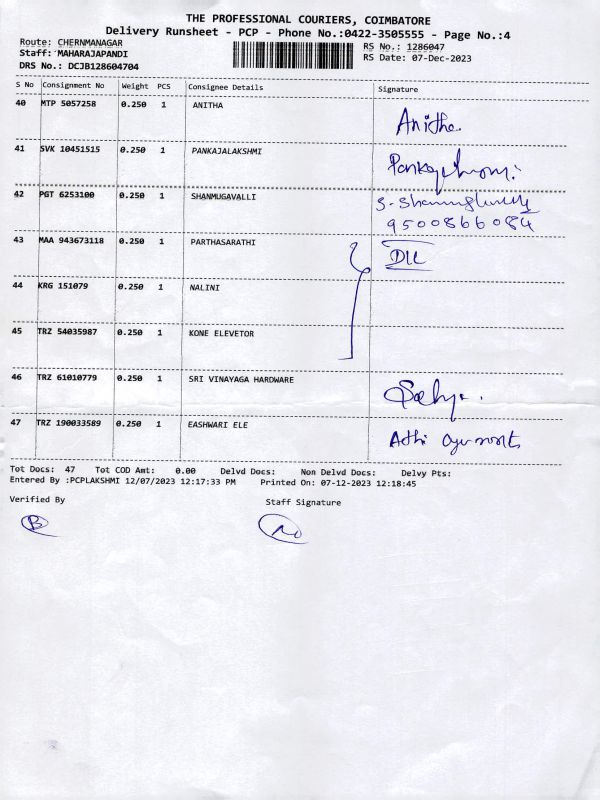 THE PROFESSIONAL COURIERS, COIMBATORE
Delivery Runsheet - PCP - Phone No.:0422-3505555 - Page No.:4
Route: CHERNMANAGAR
RS No.: 1286047
Staff: MAHARAJAPANDI
RS Date: 07-Dec-2023
DRS No.: DCJB128604704
S No Consignment No Weight PCS Consignee Details Signature
40 MTP 5057258 0.250 1 ANITHA Anitha
41 SVK 10451515 0.250 1 PANKAJALAKSHMI
42 PGT 6253100 0.250 1 SHANMUGAVALLI
9500866084
43 MAA 943673118 0.250 1 PARTHASARATHI
44 KRG 151079 0.250 1 NALINI
45 TRZ 54035987 0.250 1 KONE ELEVETOR
46 TRZ 61010779 0.250 1 SRI VINAYAGA HARDWARE
47 TRZ 190033589 0.250 1 EASHWARI ELE
Tot Docs: 47 Tot COD Amt: 0.00 Delvd Docs: Non Delvd Docs: Delvy Pts:
Entered By :PCPLAKSHMI 12/07/2023 12:17:33 PM Printed On: 07-12-2023 12:18:45
Verified By Staff Signature